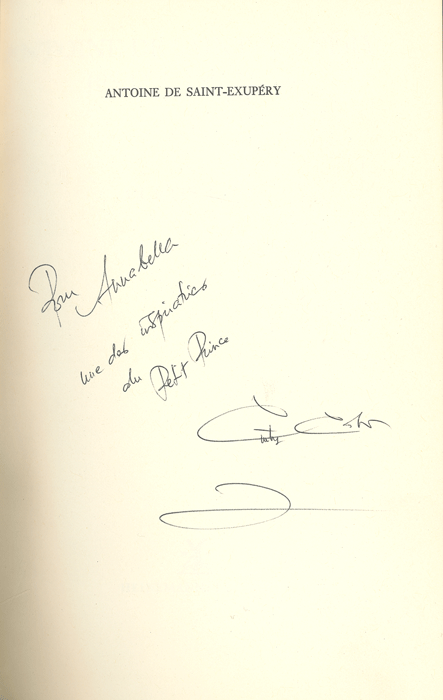 ANTOINE DE SAINT-EXUPÉRY
Pour Annabella
une des inspiratrices
du Petit Prince